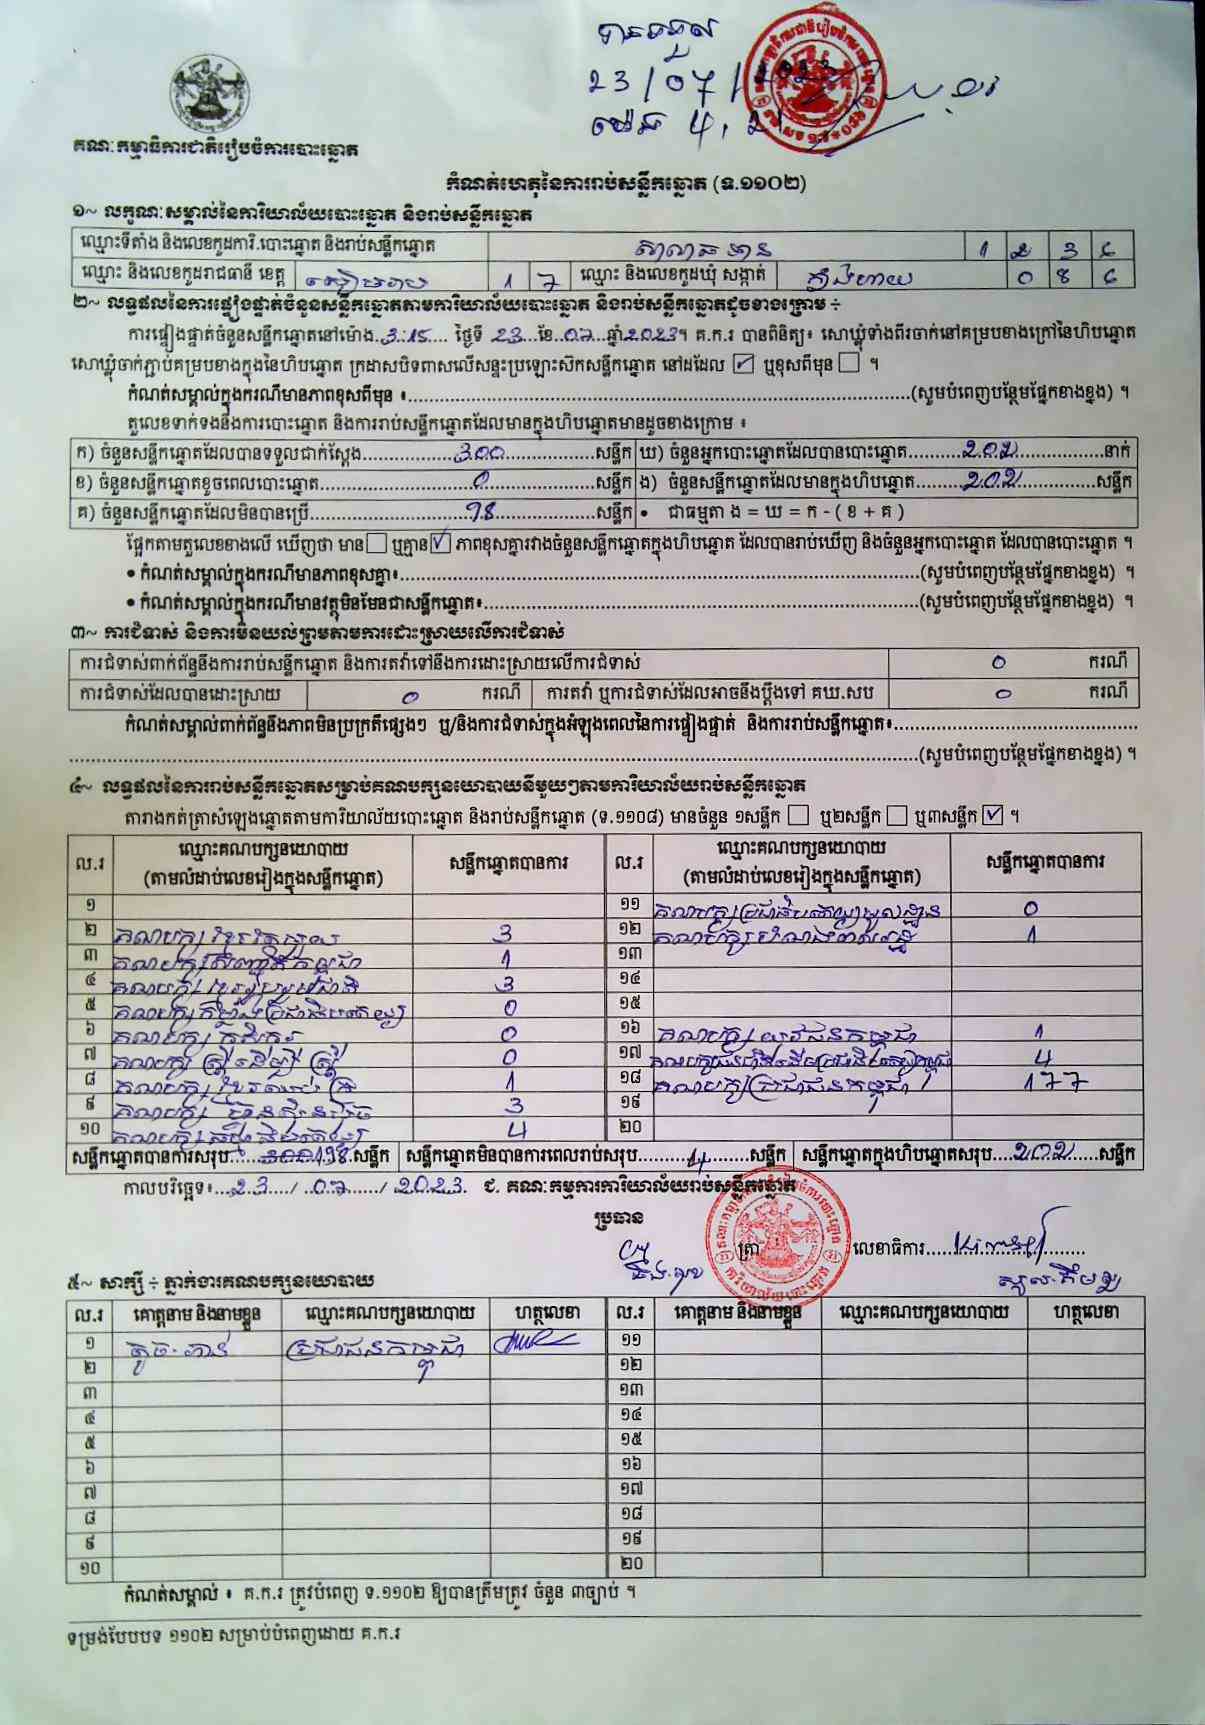 បានទទួល
23/07/2023
ម៉ោង 4, 21
គណៈកម្មាធិការជាតិរៀបចំការបោះឆ្នោត
កំណត់ហេតុនៃការរាប់សន្លឹកឆ្នោត (ទ.១១០២)
១~ លក្ខណៈសម្គាល់នៃការិយាល័យបោះឆ្នោត និងរាប់សន្លឹកឆ្នោត
ឈ្មោះទីតាំង និងលេខកូដការិ.បោះឆ្នោត និងរាប់សន្លឹកឆ្នោត 1 2 3 6
ឈ្មោះ និងលេខកូដរាជធានី ខេត្ត សៀមរាប 1 7 ឈ្មោះ និងលេខកូដឃុំ សង្កាត់ 0 8 6
២~ លទ្ធផលនៃការផ្ទៀងផ្ទាត់ចំនួនសន្លឹកឆ្នោតតាមការិយាល័យបោះឆ្នោត និងរាប់សន្លឹកឆ្នោតដូចខាងក្រោម ÷
ការផ្ទៀងផ្ទាត់ចំនួនសន្លឹកឆ្នោតនៅម៉ោង 3:15 ថ្ងៃទី 23 ខែ 07 ឆ្នាំ 2023។ គ.ក.រ បានពិនិត្យ៖ សោឃ្លុំទាំងពីរចាក់នៅគម្របខាងក្រៅនៃហិបឆ្នោត
សោឃ្លុំចាក់ភ្ជាប់គម្របខាងក្នុងនៃហិបឆ្នោត ក្រដាសបិទពាសលើសន្ទះប្រឡោះស៊កសន្លឹកឆ្នោត នៅដដែល ☑ ឬខុសពីមុន ☐ ។
កំណត់សម្គាល់ក្នុងករណីមានភាពខុសពីមុន ៖ (សូមបំពេញបន្ថែមផ្នែកខាងខ្នង) ។
តួលេខទាក់ទងនឹងការបោះឆ្នោត និងការរាប់សន្លឹកឆ្នោតដែលមានក្នុងហិបឆ្នោតមានដូចខាងក្រោម ៖
ក) ចំនួនសន្លឹកឆ្នោតដែលបានទទួលជាក់ស្តែង 300 សន្លឹក ឃ) ចំនួនអ្នកបោះឆ្នោតដែលបានបោះឆ្នោត 202 នាក់
ខ) ចំនួនសន្លឹកឆ្នោតខូចពេលបោះឆ្នោត 0 សន្លឹក ង) ចំនួនសន្លឹកឆ្នោតដែលមានក្នុងហិបឆ្នោត 202 សន្លឹក
គ) ចំនួនសន្លឹកឆ្នោតដែលមិនបានប្រើ 98 សន្លឹក • ជាធម្មតា ង = ឃ = ក - ( ខ + គ )
ផ្អែកតាមតួលេខខាងលើ ឃើញថា មាន ☐ ឬគ្មាន ☑ ភាពខុសគ្នារវាងចំនួនសន្លឹកឆ្នោតក្នុងហិបឆ្នោត ដែលបានរាប់ឃើញ និងចំនួនអ្នកបោះឆ្នោត ដែលបានបោះឆ្នោត ។
• កំណត់សម្គាល់ក្នុងករណីមានភាពខុសគ្នា៖ (សូមបំពេញបន្ថែមផ្នែកខាងខ្នង) ។
• កំណត់សម្គាល់ក្នុងករណីមានវត្ថុមិនមែនជាសន្លឹកឆ្នោត៖ (សូមបំពេញបន្ថែមផ្នែកខាងខ្នង) ។
៣~ ការជំទាស់ និងការមិនយល់ព្រមតាមការដោះស្រាយលើការជំទាស់
ការជំទាស់ពាក់ព័ន្ធនឹងការរាប់សន្លឹកឆ្នោត និងការតវ៉ាទៅនឹងការដោះស្រាយលើការជំទាស់ 0 ករណី
ការជំទាស់ដែលបានដោះស្រាយ 0 ករណី ការតវ៉ា ឬការជំទាស់ដែលអាចនឹងប្តឹងទៅ គឃ.សប 0 ករណី
កំណត់សម្គាល់ពាក់ព័ន្ធនឹងភាពមិនប្រក្រតីផ្សេងៗ ឬ/និងការជំទាស់ក្នុងអំឡុងពេលនៃការផ្ទៀងផ្ទាត់ និងការរាប់សន្លឹកឆ្នោត៖
(សូមបំពេញបន្ថែមផ្នែកខាងខ្នង) ។
៤~ លទ្ធផលនៃការរាប់សន្លឹកឆ្នោតសម្រាប់គណបក្សនយោបាយនីមួយៗតាមការិយាល័យរាប់សន្លឹកឆ្នោត
តារាងកត់ត្រាសំឡេងឆ្នោតតាមការិយាល័យបោះឆ្នោត និងរាប់សន្លឹកឆ្នោត (ទ.១១០៨) មានចំនួន ១សន្លឹក ☐ ឬ២សន្លឹក ☐ ឬ៣សន្លឹក ☑ ។
ល.រ ឈ្មោះគណបក្សនយោបាយ (តាមលំដាប់លេខរៀងក្នុងសន្លឹកឆ្នោត) សន្លឹកឆ្នោតបានការ ល.រ ឈ្មោះគណបក្សនយោបាយ (តាមលំដាប់លេខរៀងក្នុងសន្លឹកឆ្នោត) សន្លឹកឆ្នោតបានការ
១ ១១ គណបក្សប្រជាធិបតេយ្យមូលដ្ឋាន 0
២ គណបក្ស 3 ១២ គណបក្ស 1
៣ គណបក្ស 1 ១៣
៤ គណបក្សខ្មែររួបរួមជាតិ 3 ១៤
៥ គណបក្សកម្លាំងប្រជាធិបតេយ្យ 0 ១៥
៦ គណបក្សកសិករ 0 ១៦ គណបក្សយុវជនកម្ពុជា 1
៧ គណបក្សស្ត្រីដើម្បីស្ត្រី 0 ១៧ គណបក្ស 4
៨ គណបក្ស 1 ១៨ គណបក្សប្រជាជនកម្ពុជា 177
៩ គណបក្សហ៊្វុនស៊ិនប៉ិច 3 ១៩
១០ គណបក្សធម្មាធិបតេយ្យ 4 ២០
សន្លឹកឆ្នោតបានការសរុប 198 សន្លឹក សន្លឹកឆ្នោតមិនបានការពេលរាប់សរុប 4 សន្លឹក សន្លឹកឆ្នោតក្នុងហិបឆ្នោតសរុប 202 សន្លឹក
កាលបរិច្ឆេទ៖ 23 / 07 / 2023 ជ. គណៈកម្មការការិយាល័យរាប់សន្លឹកឆ្នោត
ប្រធាន
ត្រា លេខាធិការ
៥~ សាក្សី ÷ ភ្នាក់ងារគណបក្សនយោបាយ
ល.រ គោត្តនាម និងនាមខ្លួន ឈ្មោះគណបក្សនយោបាយ ហត្ថលេខា ល.រ គោត្តនាម និងនាមខ្លួន ឈ្មោះគណបក្សនយោបាយ ហត្ថលេខា
១ ប្រជាជនកម្ពុជា ១១
២ ១២
៣ ១៣
៤ ១៤
៥ ១៥
៦ ១៦
៧ ១៧
៨ ១៨
៩ ១៩
១០ ២០
កំណត់សម្គាល់ ៖ គ.ក.រ ត្រូវបំពេញ ទ.១១០២ ឱ្យបានត្រឹមត្រូវ ចំនួន ៣ច្បាប់ ។
ទម្រង់បែបបទ ១១០២ សម្រាប់បំពេញដោយ គ.ក.រ